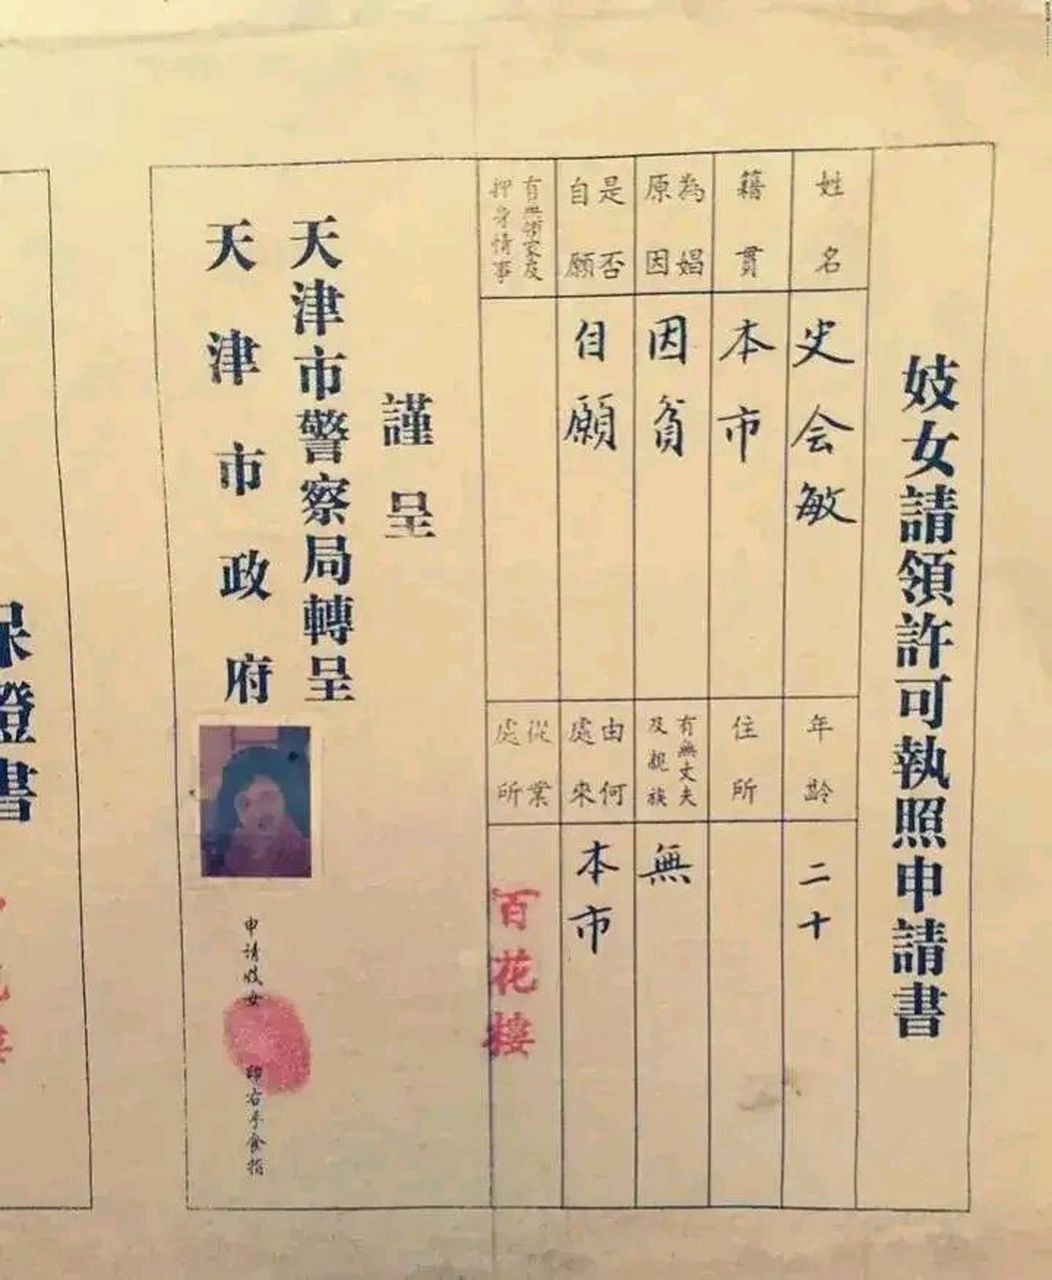 妓女請領許可執照申請書
姓名
史会敏
年齡
二十
籍貫
本市
住所
為娼原因
因貧
有無丈夫及親族
無
是否自願
自願
由何處來
本市
有無領家及押身情事
從業處所
百花樓
謹呈
天津市警察局轉呈
天津市政府
申請妓女
印右手食指
保證書